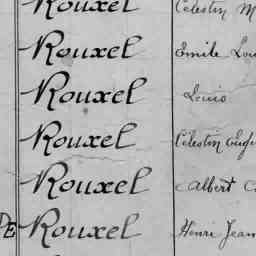 Rouxel Célestin M
Rouxel Emile Lou
Rouxel Louis
Rouxel Célestin Eugè
Rouxel Albert C
DE Rouxel Henri Jean